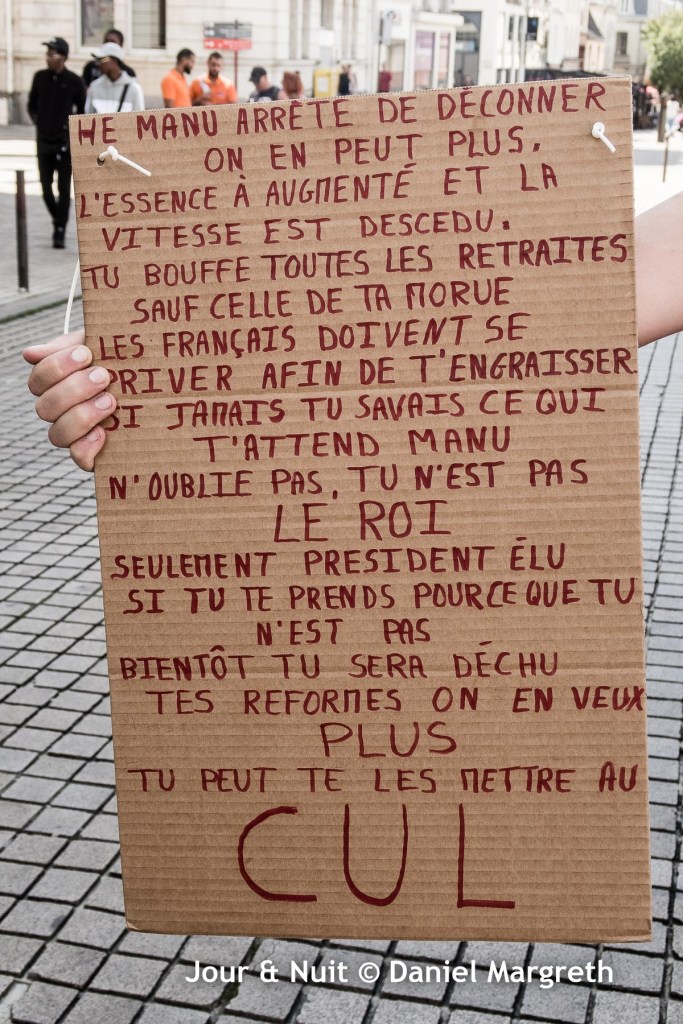 HE MANU ARRÊTE DE DÉCONNER
ON EN PEUT PLUS.
L'ESSENCE À AUGMENTÉ ET LA
VITESSE EST DESCEDU.
TU BOUFFE TOUTES LES RETRAITES
SAUF CELLE DE TA MORUE
LES FRANÇAIS DOIVENT SE
PRIVER AFIN DE T'ENGRAISSER
SI JAMAIS TU SAVAIS CE QUI
T'ATTEND MANU
N'OUBLIE PAS, TU N'EST PAS
LE ROI
SEULEMENT PRESIDENT ÉLU
SI TU TE PRENDS POUR CE QUE TU
N'EST PAS
BIENTÔT TU SERA DÉCHU
TES REFORMES ON EN VEUX
PLUS
TU PEUT TE LES METTRE AU
CUL
Jour & Nuit © Daniel Margreth